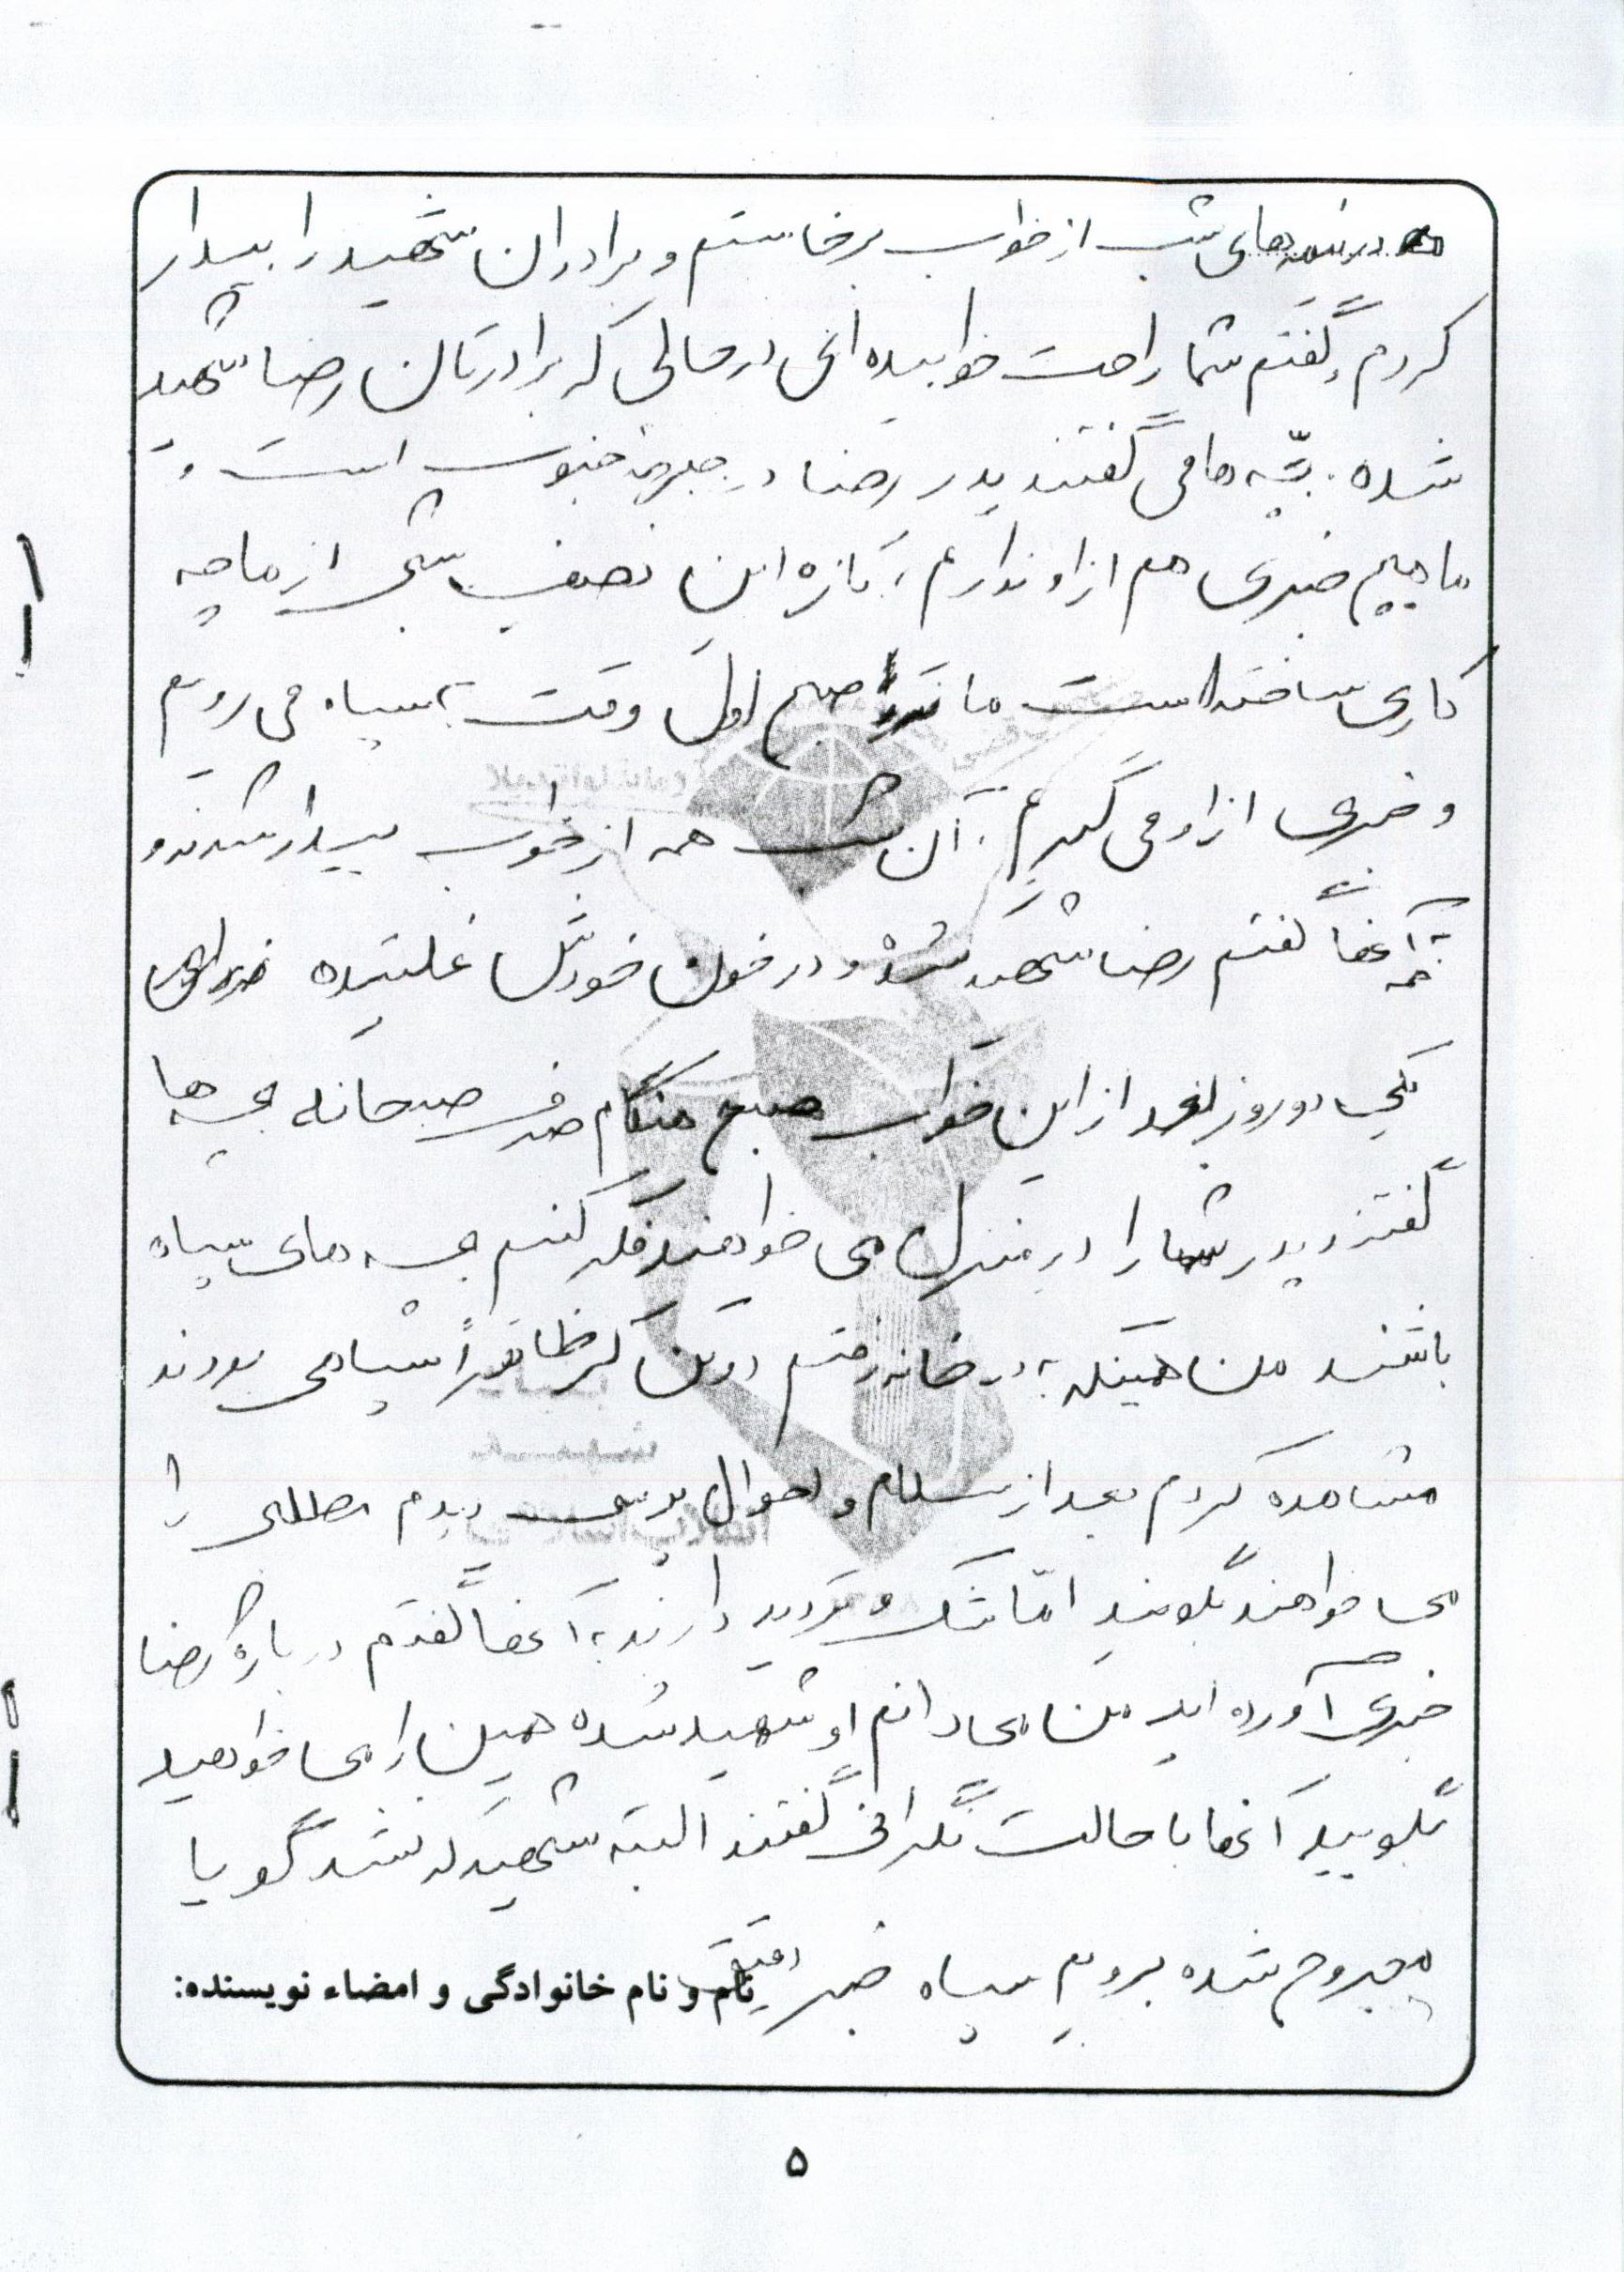 در نیمه‌های شب از خواب برخاستم و برادران شهید را بیدار
کردم و گفتم شما راحت خوابیده‌ای در حالی که برادرتان رضا شهید
شده . بچه‌ها می گفتند پدر رضا در جبهه جنوب است و
ما هیچ خبری هم از او نداریم ، تازه این نصف شبی از ما چه
کاری ساخته است ما فردا صبح اول وقت به سپاه می رویم
و خبری از او می گیریم . آن شب همه از خواب بیدار شدند و
به آنها گفتم رضا شهید شده و در خون خودش غلتیده
یکی دو روز بعد از این خواب صبح هنگام صرف صبحانه بچه ها
گفتند پدر شما را در منزل می خواهند فکر کنم بچه های سپاه
باشند من همینکه به در خانه رفتم دو تن که ظاهراً سپاهی بودند
مشاهده کردم بعد از سلام و احوال پرسی دیدم مطلبی را
می خواهند بگویند امّا شک و تردید دارند به آنها گفتم درباره رضا
خبری آورده اید من می دانم او شهید شده همین را می خواهید
بگویید آنها با حالت نگرانی گفتند البته شهید که نشد گویا
مجروح شده برویم سپاه خبر دقیق
نام و نام خانوادگی و امضاء نویسنده:
۵